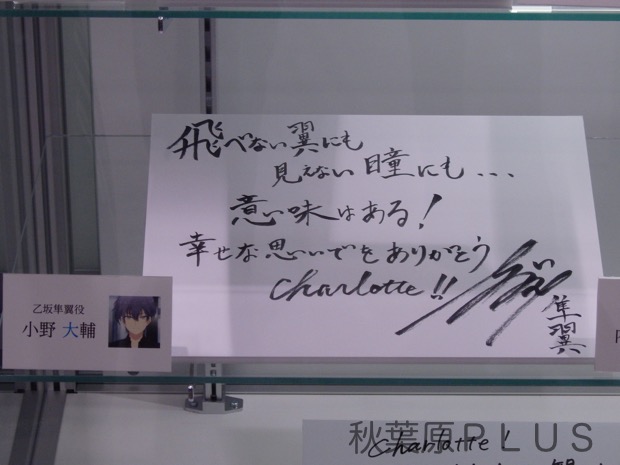 飛べない翼にも
見えない瞳にも...
意味はある!
幸せな思いでをありがとう
Charlotte!!
隼翼
乙坂隼翼役
小野 大輔
秋葉原PLUS
Charlotte!